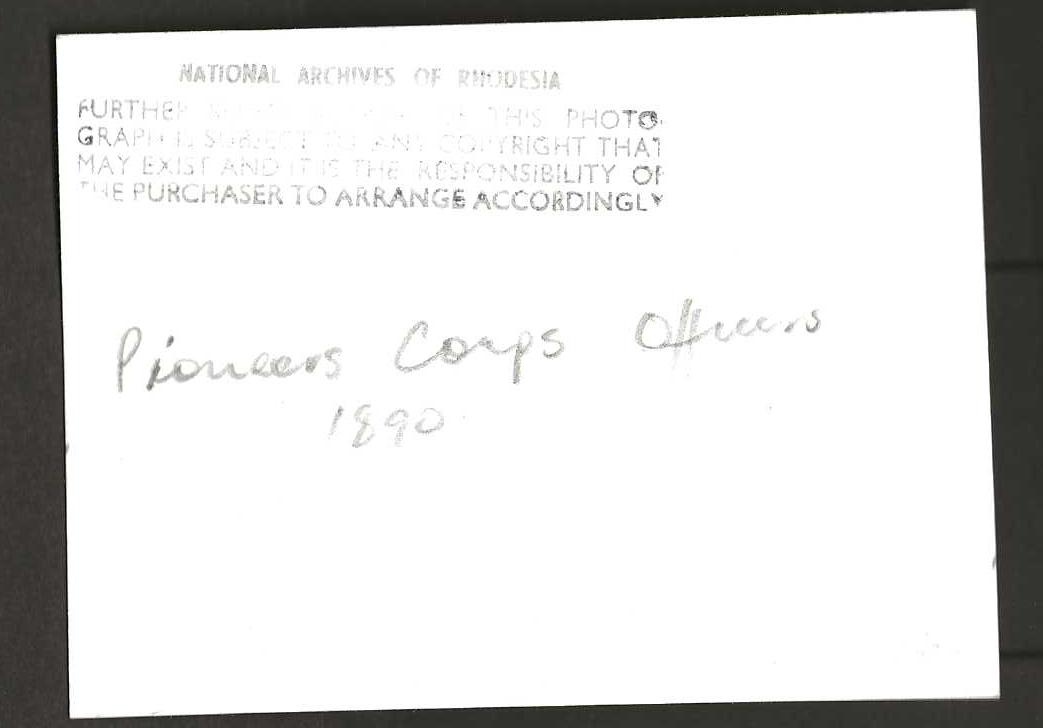 NATIONAL ARCHIVES OF RHODESIA
FURTHER OF THIS PHOTO-
GRAPH IS SUBJECT TO ANY COPYRIGHT THAT
MAY EXIST AND IT IS THE RESPONSIBILITY OF
THE PURCHASER TO ARRANGE ACCORDINGLY
Pioneers Corps Officers
1890